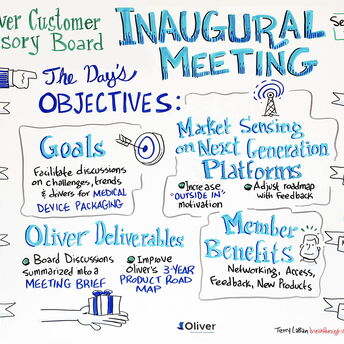 ver Customer
sory Board
INAUGURAL
MEETING
Se
The Day's
OBJECTIVES:
Goals
Facilitate discussions
on challenges, trends
& drivers for MEDICAL
DEVICE PACKAGING
Market Sensing
on Next Generation
Platforms
Increase
"OUTSIDE IN"
motivation
Adjust roadmap
with Feedback
Oliver Deliverables
Board Discussions
summarized into a
MEETING BRIEF
Improve
Oliver's 3-YEAR
PRODUCT ROAD
MAP
Member
Benefits
Networking, Access,
Feedback, New Products
Oliver